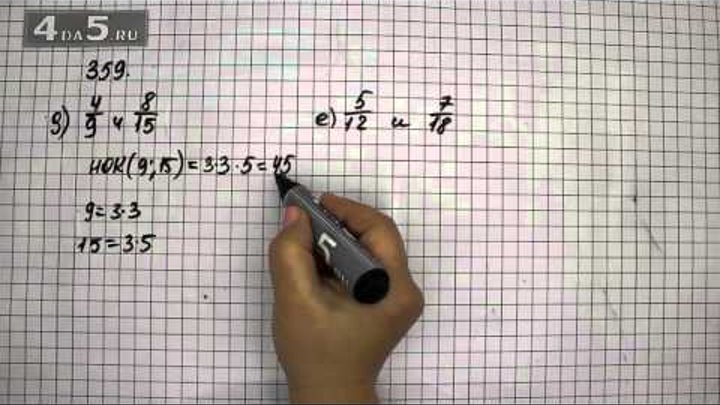 4 DA 5.RU
359.
д) 4/9 и 8/15
е) 5/12 и 7/18
НОК(9;15) = 3·3·5 = 45
9 = 3·3
15 = 3·5
5